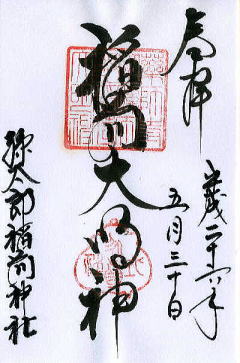 奉拝
平成二十六年
五月三十日
稲荷大明神
弥太郎稲荷神社